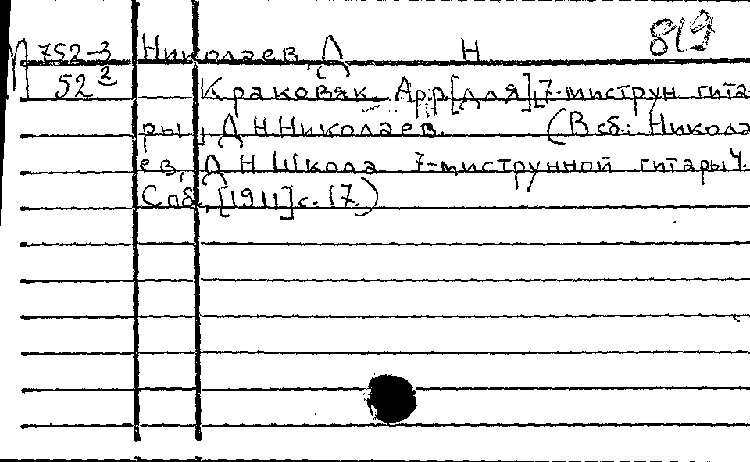 819
М 752-3 Николаев, Д Н
52²
Краковяк. Арр [для] 7-миструн гита
ры, Д Н Николаев. (В сб: Никола
ев, Д Н Школа 7-миструнной гитары Ч.
Спб, [1911] с. 17)